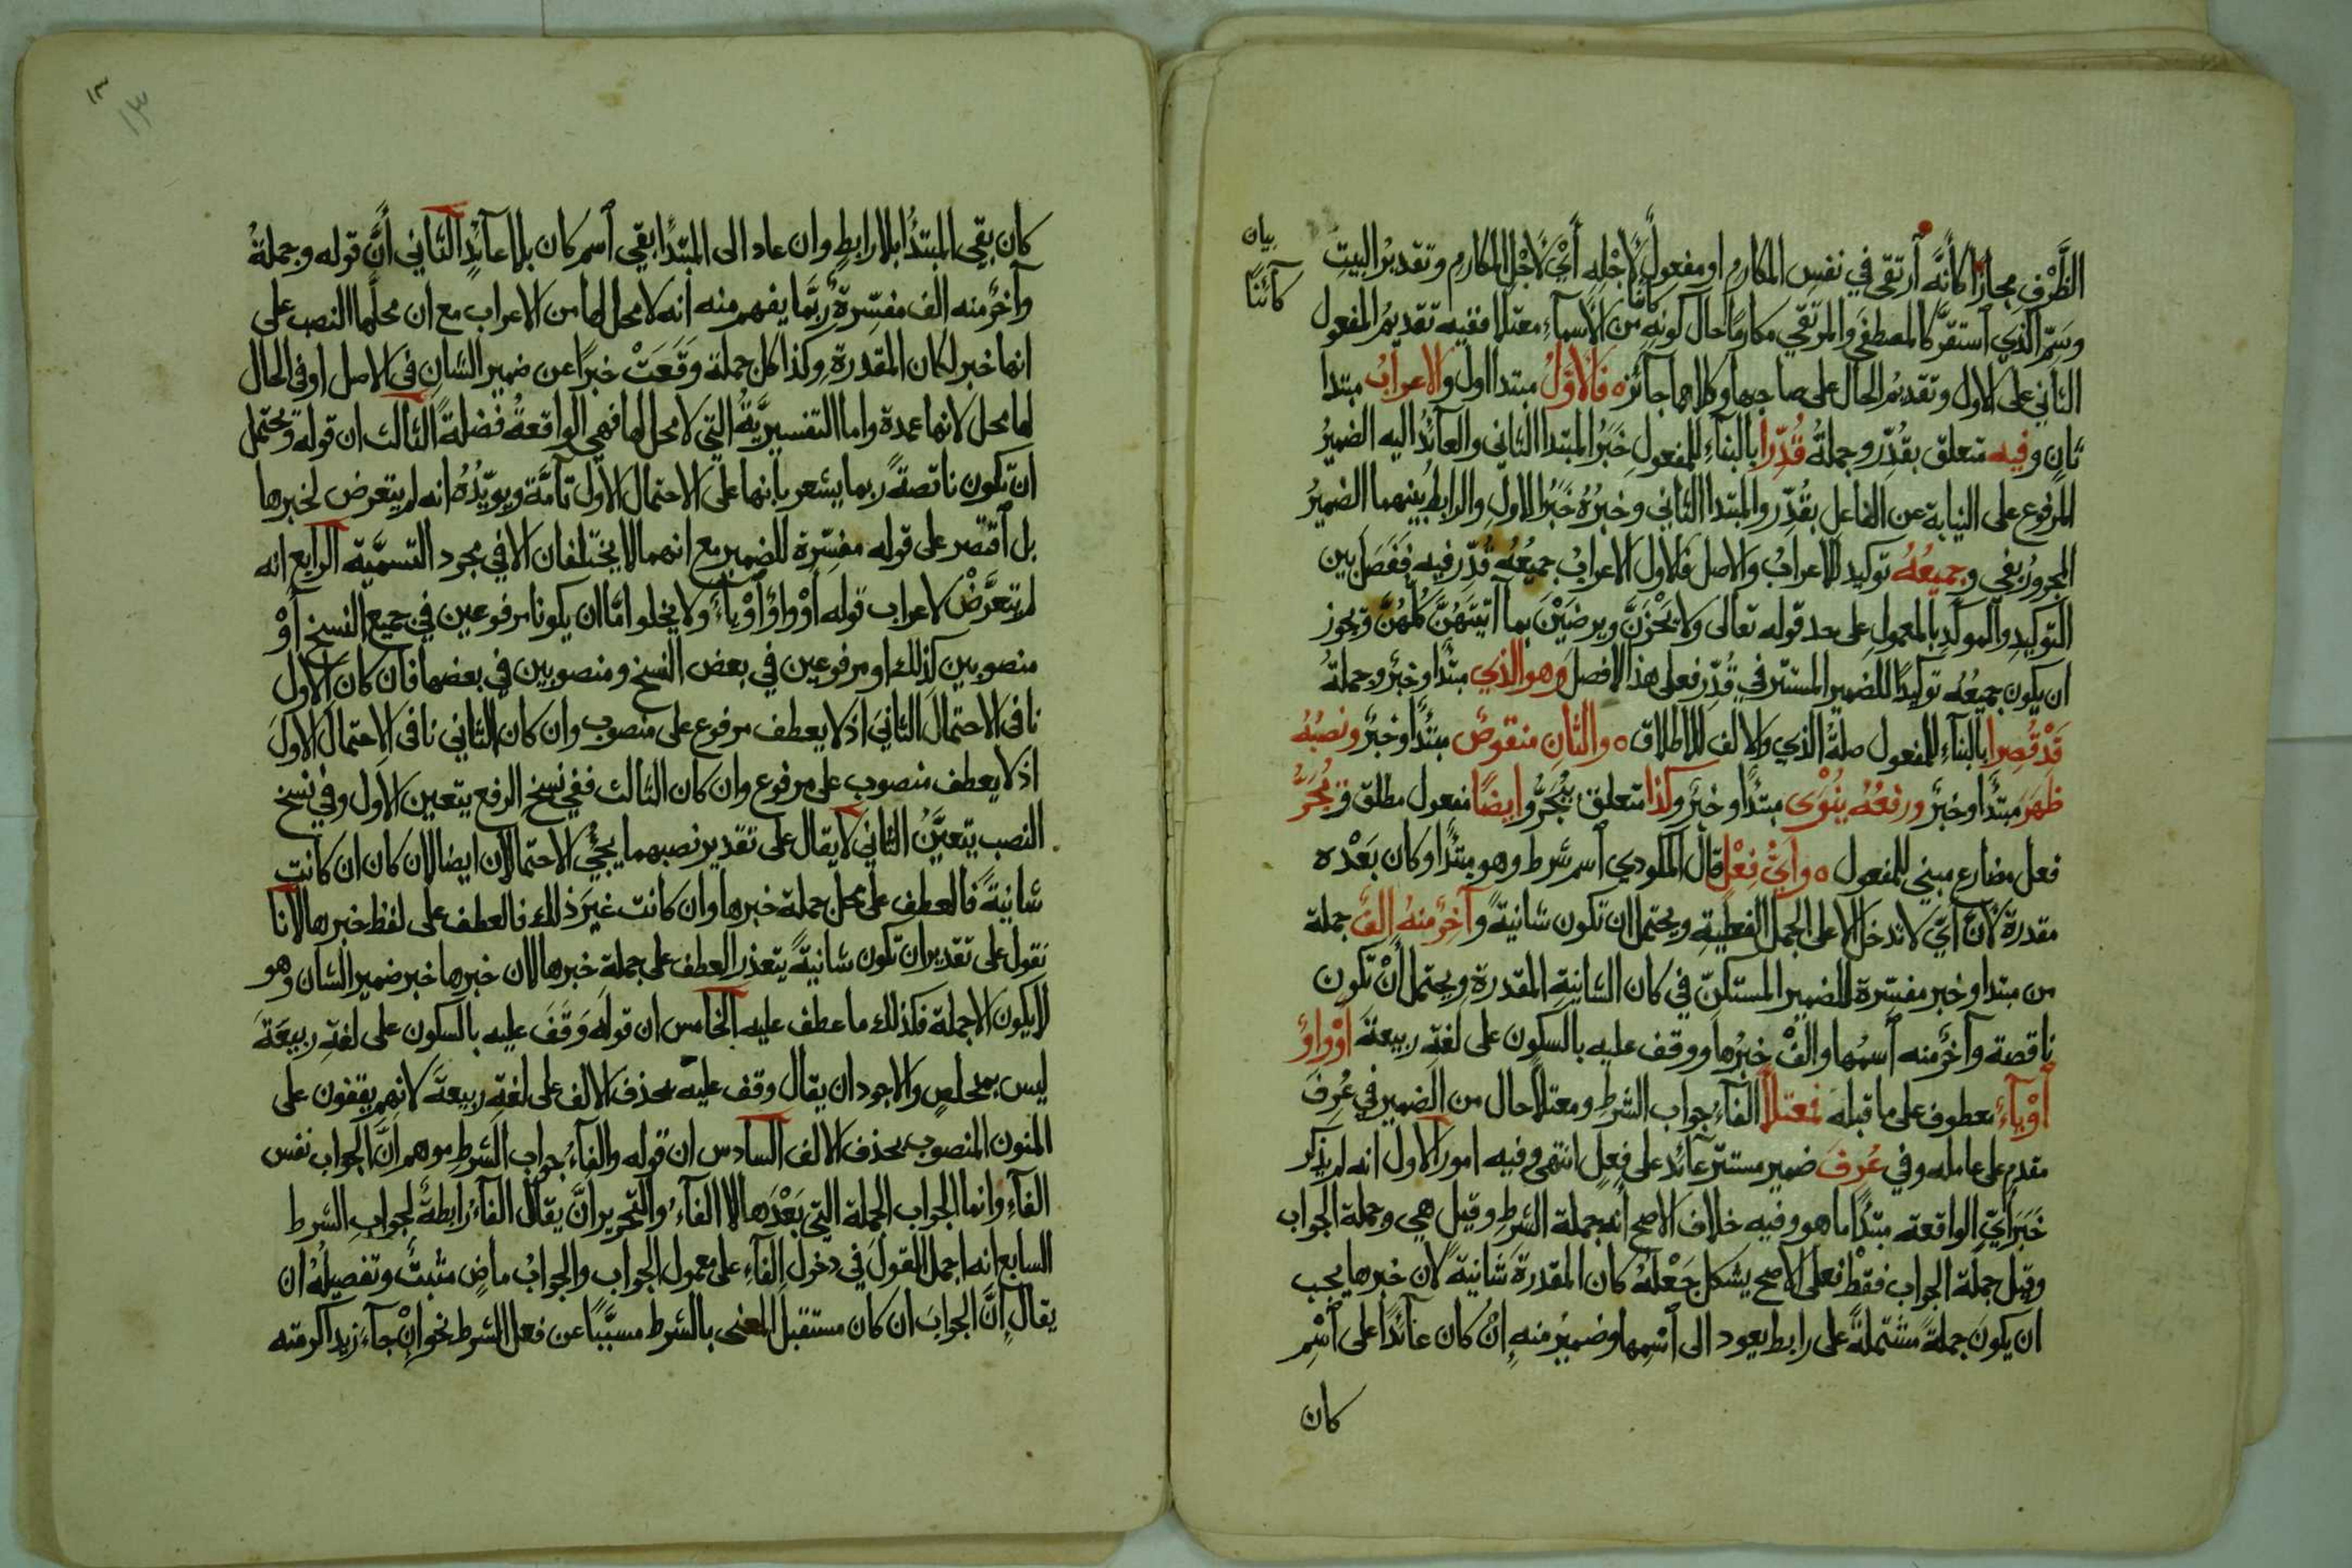 الظَّرْفِ مجازًا كأنَّه آرتقى في نفس المكارم او مفعولٌ لأجْلِهِ أيْ لأجْل المكارم وتقديرُ البيتِ
بيان
وسَمِّ الذي آستقرَّ كالمصطفى والمرتقي مكارمًا حال كونِهِ من الأسمآء معتلا ففيه تقديمُ المفعول
كآئنًا
كائنًا
الثاني على الاول وتقديمُ الحال على صاحبها وكلاهما جآئز ه فالاوّلُ مبتدا اول والاعرابُ مبتدا
ثان وفيه متعلق بقُدِّر وجملةُ قُدِّرا بالبنآء للمفعول خَبَرُ المبتدا الثاني والعآئدُ اليه الضميرُ
المرفوع على النيابة عن الفاعل بقُدِّر والمبتدا الثاني وخبرُهُ خَبَرُ الاولِ والرابطُ بينهما الضميرُ
المجرورُ بفي وجميعُهُ توكيد للاعراب والاصل فالاول الاعرابُ جميعُهُ قُدِّر فيه ففَصَل بين
التوكيدِ والموكَّدِ بالمعمولِ على حد قوله تعالى ولا يَحْزَنَّ ويرضَيْنَ بما آتيتَهُنَّ كُلُّهُنَّ ويجوز
ان يكون جميعُهُ توكيدًا للضمير المستتر في قُدِّر فعلى هذا لا فصل وهو الذي مبتدا وخبرٌ وجملةُ
قَدْ قُصِرا بالبنآءِ للمفعول صلةُ الذي والالف للاطلاق ه والثانِ منقوصٌ مبتدًا وخبرٌ ونصبُهُ
ظهَرَ مبتدًا وخبرٌ ورفعُهُ يُنْوَى مبتدًا وخبرٌ وكذا متعلق بيُجَرُّ وايضًا مفعول مطلق ويُجَرُّ
فعل مضارع مبني للمفعول ه وأيُّ فِعْلٍ قال المكودي آسم شرط وهو مبتدًا وكان بَعْدَه
مقدرة لأنّ أيّ لا تدخل الا على الجمل الفعلية ويحتمل ان تكون شانيةً وآخِرٌ منهُ الِفٌ جملة
من مبتدا وخبر مفسّرة للضمير المستكنّ في كان الشانيةِ المقدرةِ ويحتمل أنْ تكون
ناقصة وآخرٌ منه آسمُها والفٌ خبرُها ووقف عليه بالسكون على لغة ربيعة أوْ واوٌ
أوْ يآءٌ معطوف على ما قبله فمعتلاًّ الفآءُ جواب الشرطِ ومعتلاً حال من الضمير في عُرِفَ
مقدم على عامله وفي عُرِفَ ضمير مستترٌ عآئد على فِعلٍ انتهى وفيه امورٌ الاول انه لم يذكر
خَبَرَ أيّ الواقعة مبتدًا ما هو وفيه خلاف الاصح أنه جملة الشرطِ وقيل هي وجملة الجواب
وقيل جملة الجواب فقط فعلى الاصح يشكل جَعْلُهُ كان المقدرةَ شانيةً لان خبرها يجب
ان يكونَ جملةً مشتملةً على رابط يعود الى آسْمِها وضميرُ منهِ انْ كان عآئدًا على آسْمِ
كان
١٣
١٣
كان بقي المبتدأُ بلا رابطٍ وان عاد الى المبتدا بقي آسم كان بلا عآئدٍ الثاني أنَّ قوله وجملةُ
وآخرٌ منه الف مفسِّرةٌ ربَّما يفهم منه انه لا محل لها من الاعراب مع ان محلَّها النصب على
انها خبر لكان المقدرةِ وكذا كل جملة وَقَعَتْ خبرًا عن ضمير الشان في الاصل او في الحال
لها محل لانها عمدة واما التفسيريَّةُ التي لا محل لها فهي الواقعةُ فضلةً الثالث ان قوله ويحتمل
ان تكون ناقصةً ربما يشعر بانها على الاحتمال الاول تآمَّة ويويِّدُهُ انه لم يتعرض لخبرها
بل آقتصر على قوله مفسِّرة للضمير مع انهما لا يختلفان الا في مجرد التسميَّة الرابع انه
لم يتعَرَّضْ لاعراب قوله أوْ واوٌ أوْ يآءٌ ولا يخلو امّا ان يكونا مرفوعين في جميع النسخ أوْ
منصوبين كذلك او مرفوعين في بعض النسخ ومنصوبين في بعضها فان كان الاول
نافى الاحتمالَ الثانيَ اذ لا يعطف مرفوع على منصوب وان كان الثاني نافى الاحتمال الاول
اذ لا يعطف منصوب على مرفوع وان كان الثالث ففي نسخ الرفع يتعين الاول وفي نسخ
النصب يتعيَّنُ الثاني لا يقال على تقدير نصبهما يجيُ الاحتمالان ايضا لان كان ان كانت
شانيةً فالعطف على محل جملة خبرها وان كانت غيرَ ذلك فالعطف على لفظ خبرها لانا
نقول على تقدير ان تكون شانيةً يتعذر العطف على جملة خبرها لان خبرها خبر ضمير الشان وهو
لا يكون الا جملة فكذلك ما عطف عليه الخامس ان قوله وَقَفَ عليه بالسكون على لغةِ ربيعَةَ
ليس بمخلصٍ والاجود ان يقال وقف عليه بحذف الالف على لغةِ ربيعةَ لانهم يقفون على
المنون المنصوب بحذف الالف السادس ان قوله والفآءُ جواب الشرطِ موهم أنَّ الجواب نفس
الفآءِ وانما الجواب الجملة التي بَعْدَها لا الفآءُ والتحرير أنْ يقالَ الفآءُ رابطةٌ لجوابِ الشرط
السابع انه اجمل القولَ في دخول الفآءِ على معمول الجواب والجوابُ ماضٍ مثبتٌ وتفصيلُهُ ان
يقال إنَّ الجوابَ ان كان مستقبلَ المعنى بالشرط مسبَّبًا عن فعل الشرط نحو إنْ جآءَ زيد اكرمته